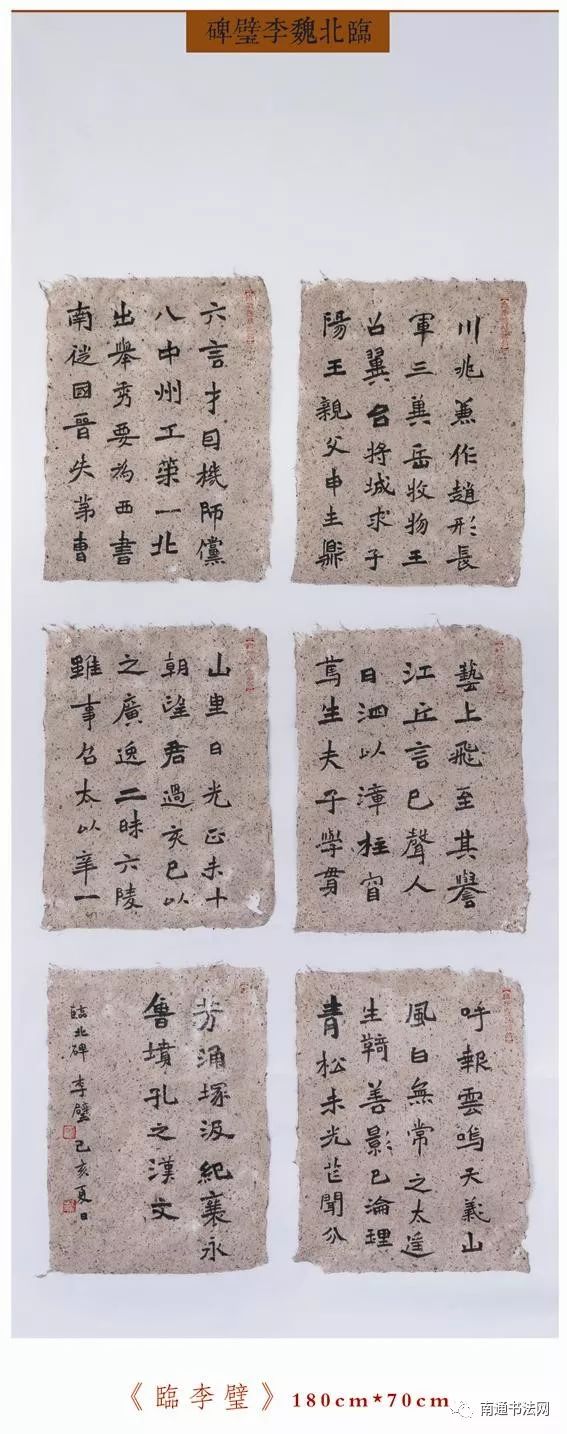 碑璧李魏北臨
川兆蕙作趙形長
軍三冀岳牧物王
召翼台將城求子
陽王親父申主
六言才司機師儻
八中州工築一北
出舉秀要為西書
南從國晉失第曹
藝上飛至其譽
江丘言已聲人
日泗以漳柱
生夫子學
山里日光正未十
朝望君過亥已以
之廣逸二昧六陵
雖事召太以辛一
呼報雲鳴天義山
風日無常之太遙
生鞫善影已淪理
青松未光聞
芳涌塚汲紀襄永
魯墳孔之漢文
臨北碑 李璧 己亥夏日
《臨李璧》180cm*70cm
南通书法网